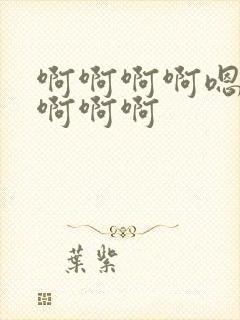 啊啊啊啊嗯
啊啊啊
葉紫